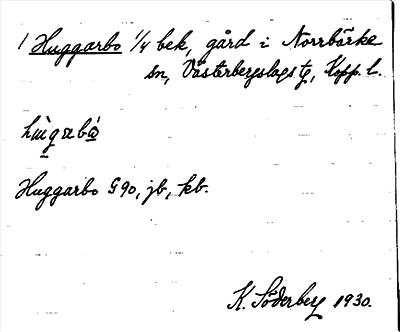 1 Huggarbo ¼ bek, gård i Norrbärke
sn, Västerbergslags tg, Kopp. l.
Huggarbo G90, jb, kb.
K. Söderberg 1930.